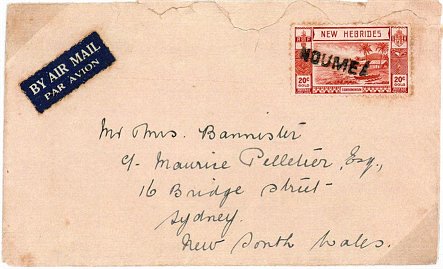 BY AIR MAIL
PAR AVION
NEW HEBRIDES
NOUMEA
20c 20c
GOLD GOLD
Mr Mrs. Bannister
c/- Maurice Pelletier, Esq.,
16 Bridge street
Sydney.
New South Wales.